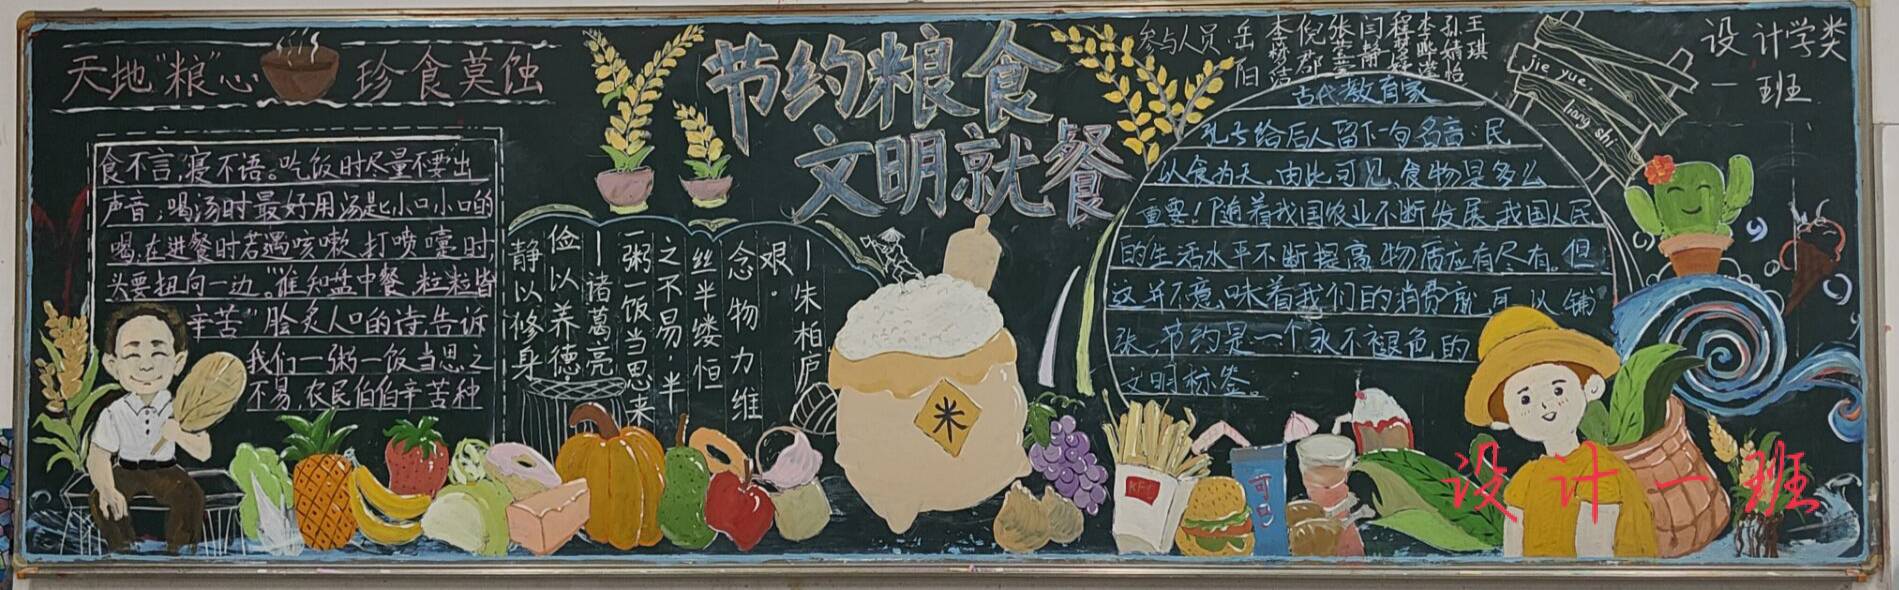 天地"粮"心 珍食莫蚀
食不言,寝不语。吃饭时尽量不要出
声音;喝汤时最好用汤匙小口小口的
喝,在进餐时若遇咳嗽、打喷嚏时
头要扭向一边。"谁知盘中餐,粒粒皆
辛苦"脍炙人口的诗告诉
我们一粥一饭当思之
不易,农民伯伯辛苦种
节约粮食
文明就餐
静以修身
俭以养德。
—诸葛亮
一粥一饭当思来
之不易。半
丝半缕恒
念物力维
艰。
—朱柏庐
米
参与人员
岳阳
倪郡
闫静
王琪
设计学类
一班
jie yue
liang shi
古代教育家
孔子给后人留下一句名言:民
以食为天,由此可见,食物是多么
重要!随着我国农业不断发展,我国人民
的生活水平不断提高,物质应有尽有。但
这并不意味着我们的消费就可以铺
张,节约是一个永不褪色的
文明标签。
KFC
可口
设计一班